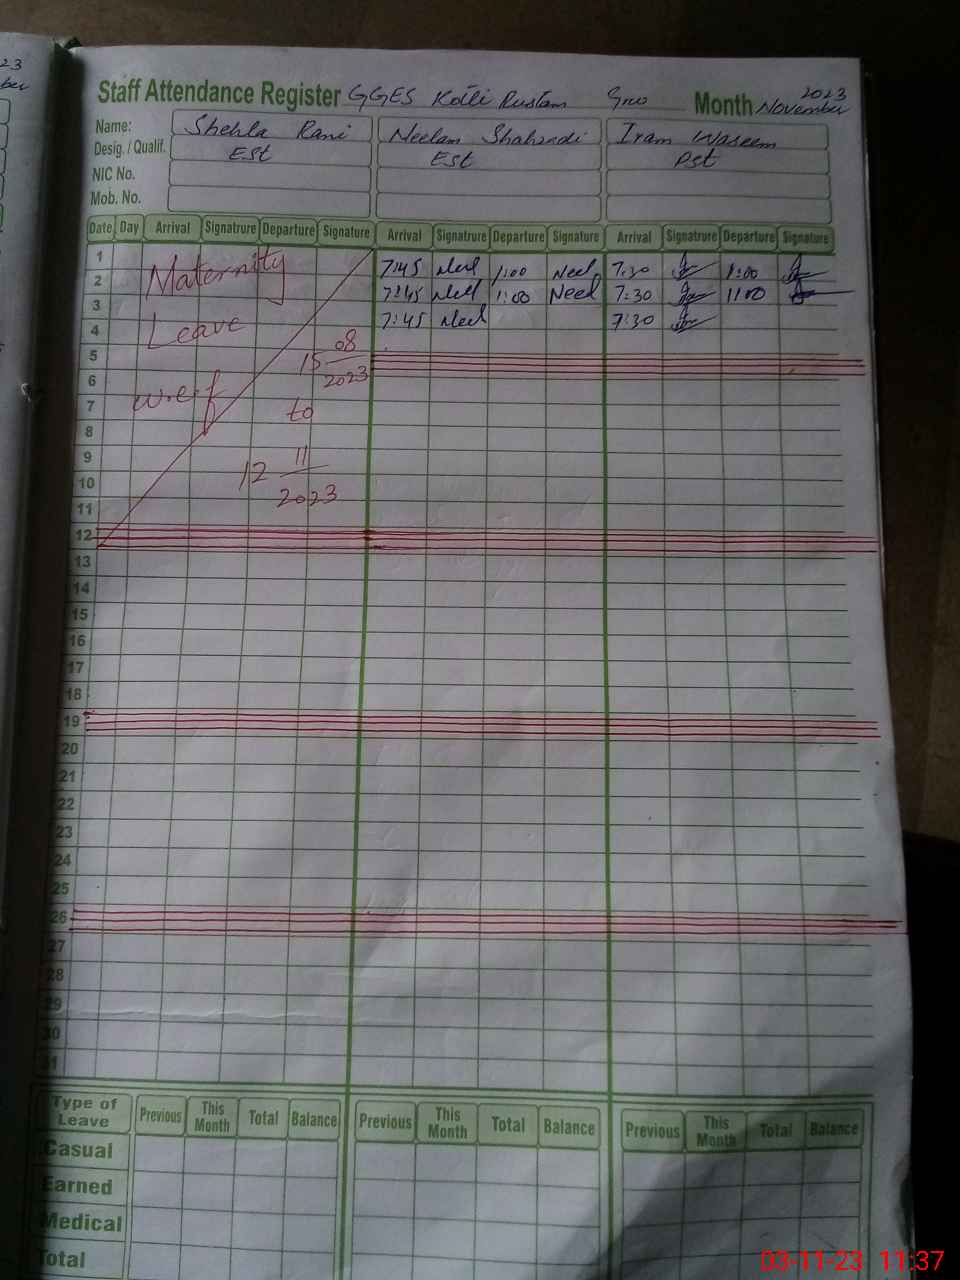 23
ber
Staff Attendance Register GGES Kotli Rustam Month November 2023
Name: Shehla Rani Neelam Shahzadi Iram Waseem
Desig. / Qualif. Est Est Pst
NIC No.
Mob. No.
Date Day Arrival Signatrure Departure Signature Arrival Signatrure Departure Signatrure Arrival Signatrure Departure Signatrure
1 Maternity 7:45 Neel 1:00 Neel 7:30 1:00
2 7:45 Neel 1:00 Neel 7:30 1:00
3 Leave 7:45 Neel 7:30
4
5 15 08 2023
6 w.e.f
7 to
8
9
10 12 11 2023
11
12
13
14
15
16
17
18
19
20
21
22
23
24
25
26
27
28
29
30
31
Type of Leave Previous This Month Total Balance Previous This Month Total Balance Previous This Month Total Balance
Casual
Earned
Medical
Total
03-11-23 11:37